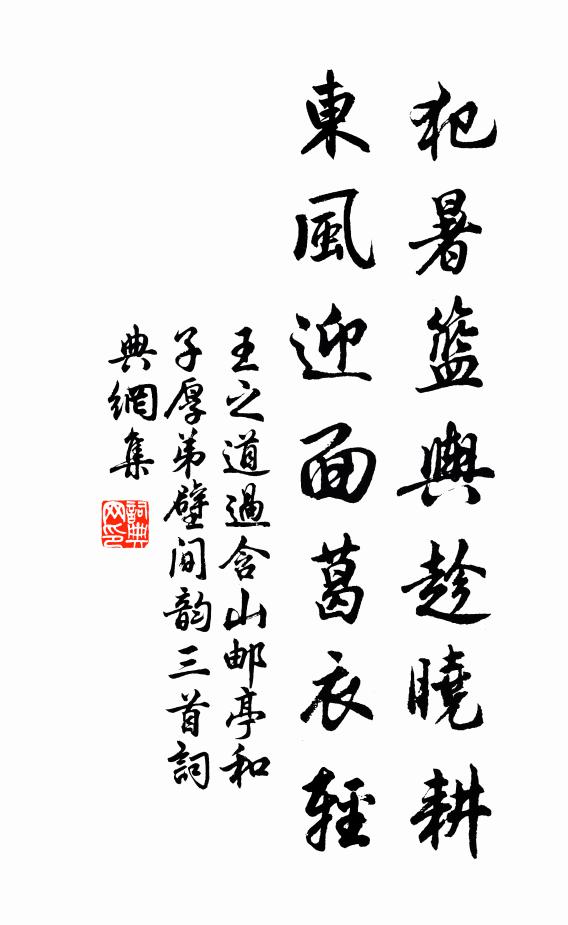 犯暑籃輿趁曉耕
東風迎面葛衣輕
王之道過含山邮亭和
子厚弟壁间韵三首詞
典網集
詞典
网印